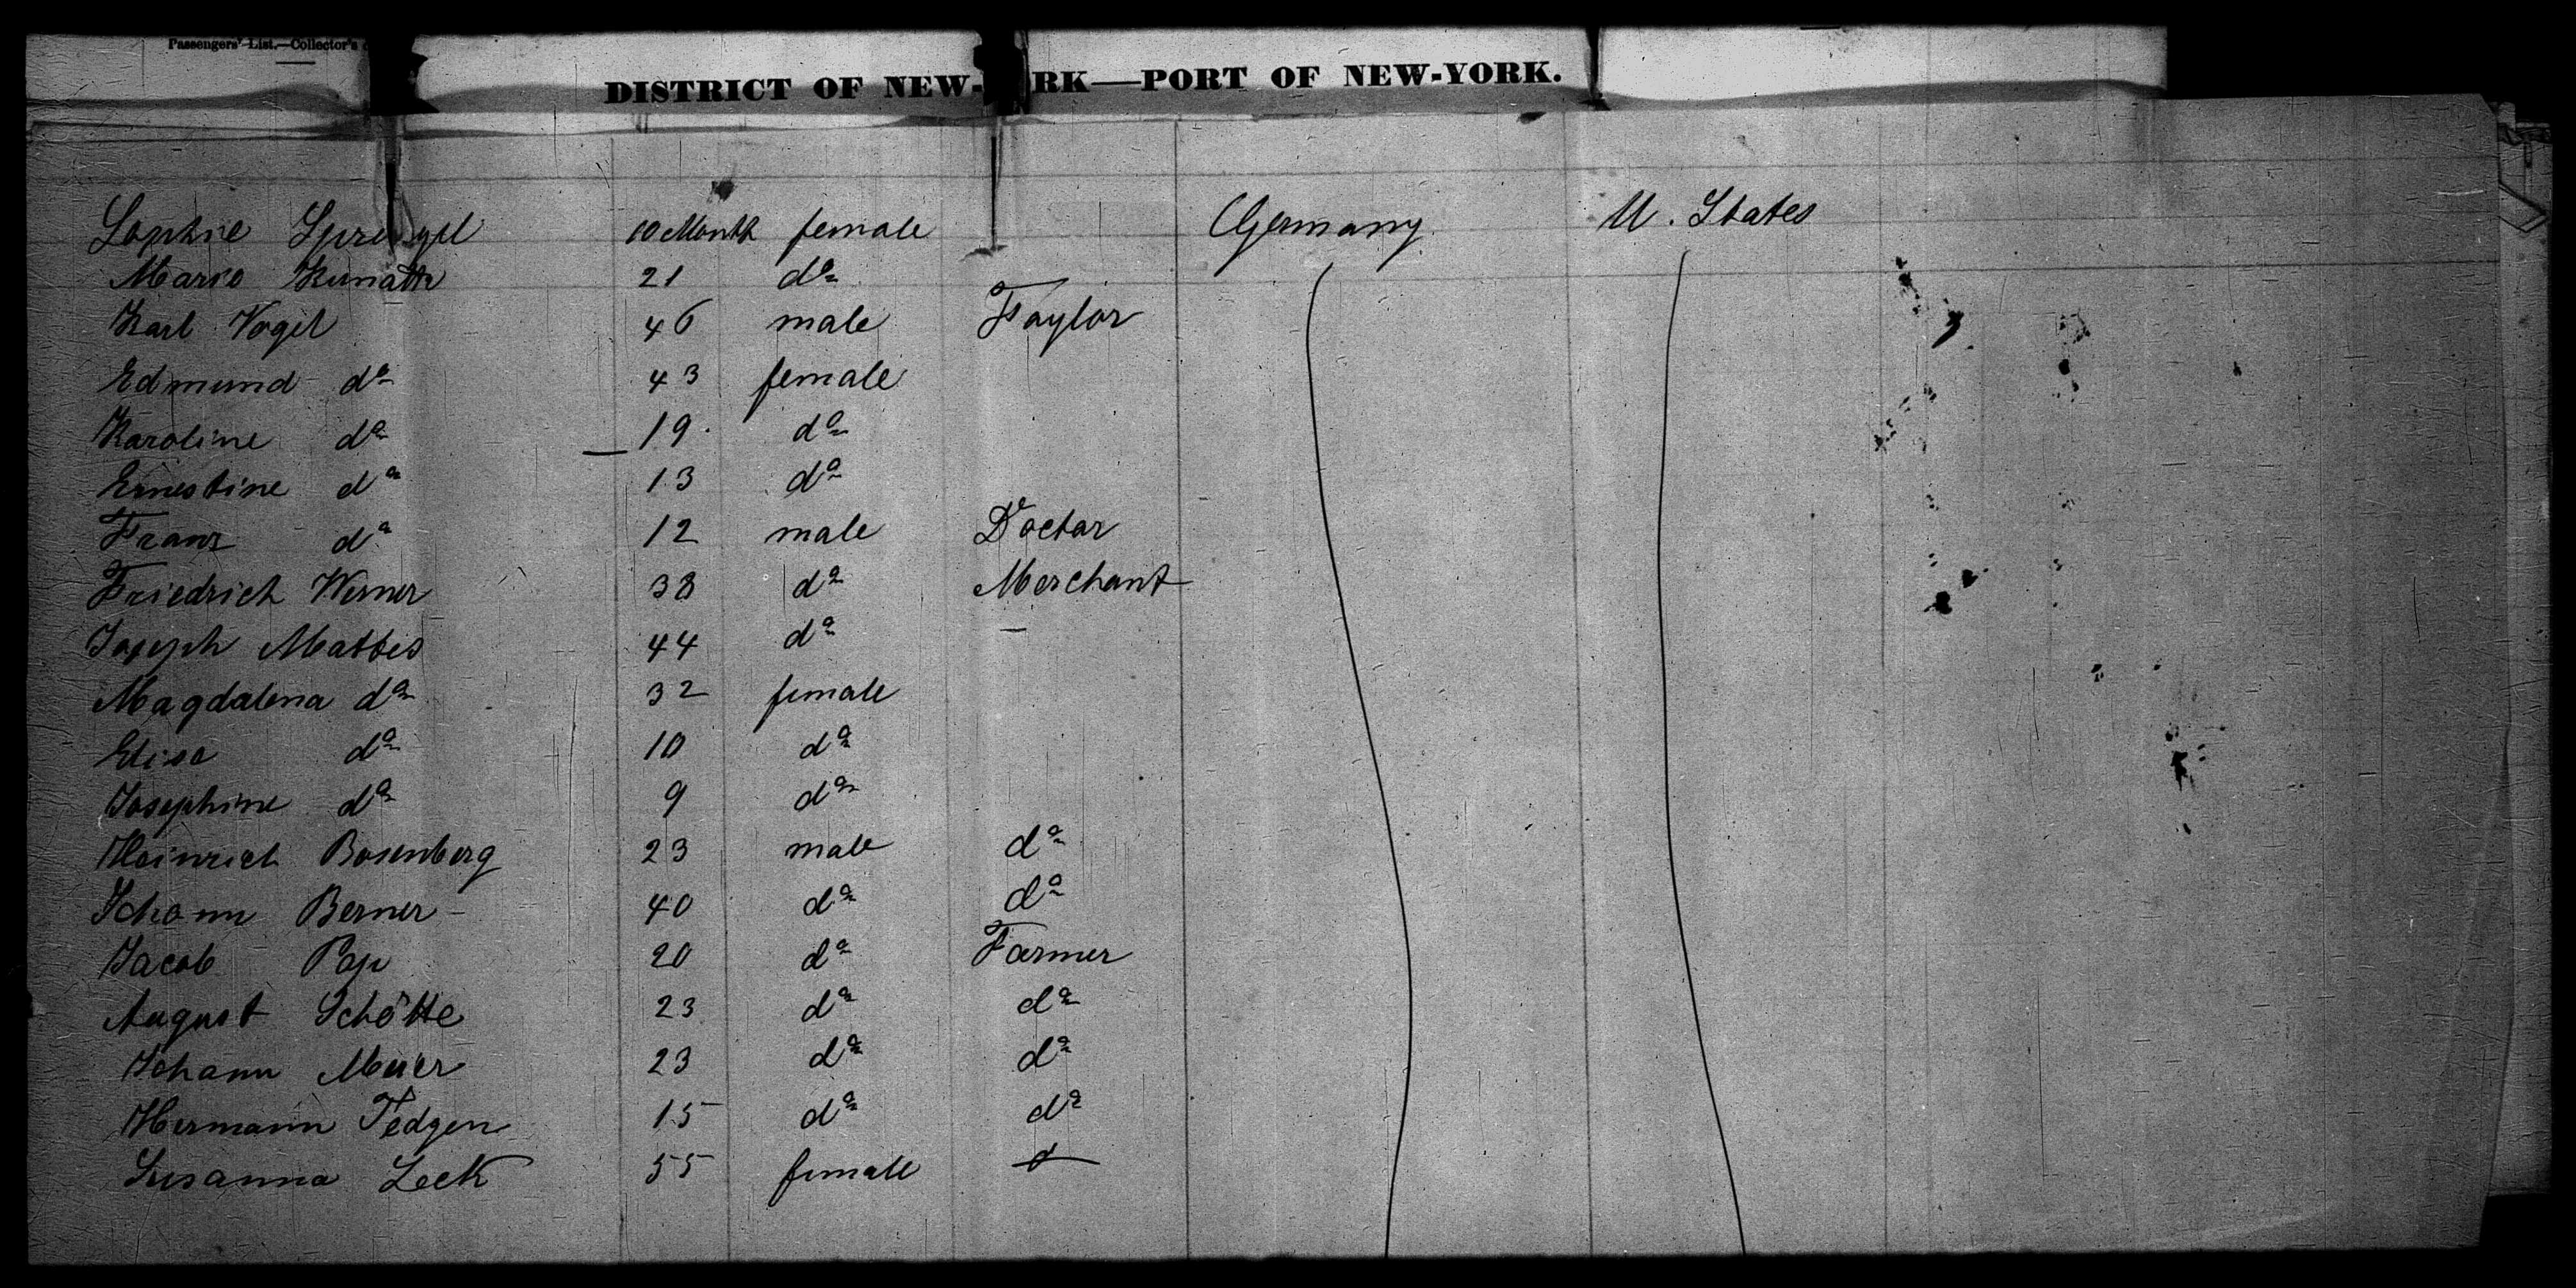 Passengers' List.—Collector's
DISTRICT OF NEW- RK—PORT OF NEW-YORK.
Sophie Sprengel 10 Month female Germany U. States
Marie Kunath 21 do
Karl Vogel 46 male Taylor
Edmund do 43 female
Karoline do 19 do
Ernestine do 13 do
Franz do 12 male Doctor
Friedrich Werner 38 do Merchant
Joseph Mattes 44 do —
Magdalena do 32 female
Elise do 10 do
Josephine do 9 do
Heinrich Bosenberg 23 male do
Johann Berner 40 do do
Jacob Pap 20 do Farmer
August Schötte 23 do do
Johann Meier 23 do do
Hermann Tedgen 15 do do
Susanna Leck 55 female